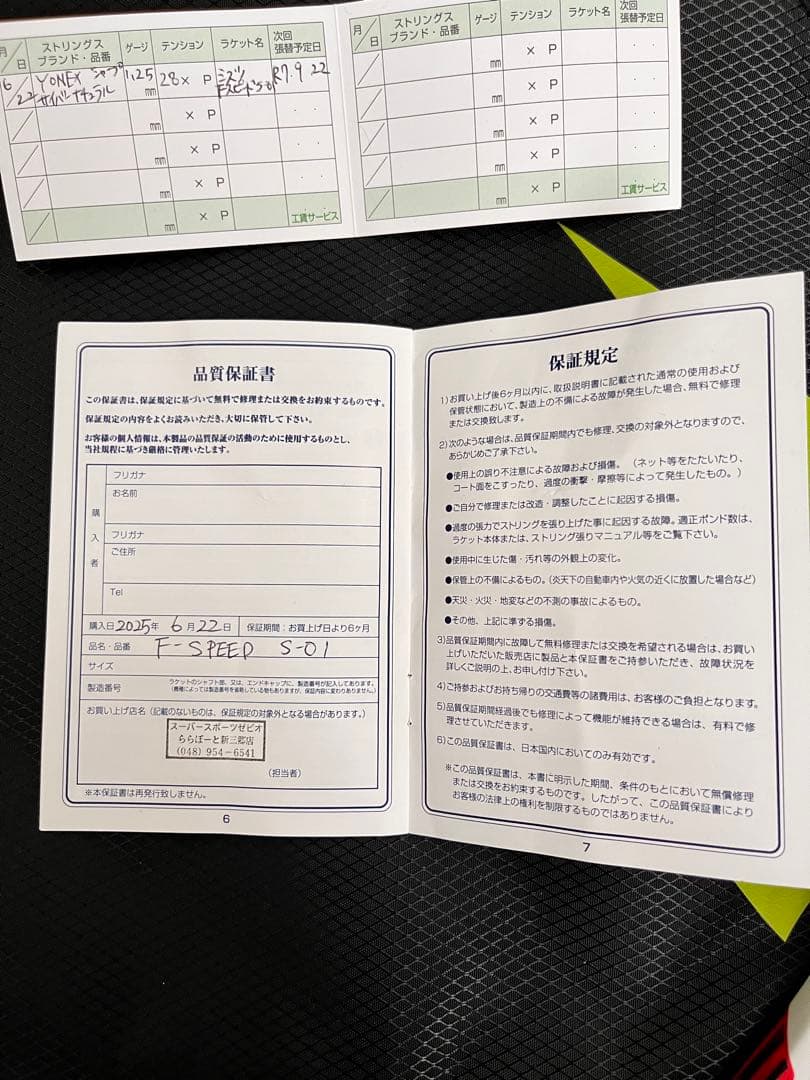 月/日 ストリングスブランド・品番 ゲージ テンション ラケット名 次回張替予定日
6/22 YONEX シャープ サイバーナチュラル 1.25mm 28×P ミズノ Fスピード R7.9 22
/ mm ×P ・ ・
/ mm ×P ・ ・
/ mm ×P ・ ・
/ mm ×P 工賃サービス
月/日 ストリングスブランド・品番 ゲージ テンション ラケット名 次回張替予定日
/ mm ×P ・ ・
/ mm ×P ・ ・
/ mm ×P ・ ・
/ mm ×P ・ ・
/ mm ×P 工賃サービス
品質保証書
この保証書は、保証規定に基づいて無料で修理または交換をお約束するものです。
保証規定の内容をよくお読みいただき、大切に保管して下さい。
お客様の個人情報は、本製品の品質保証の活動のために使用するものとし、
当社規程に基づき厳格に管理いたします。
購入者
フリガナ
お名前
フリガナ
ご住所
Tel
購入日 2025年 6月22日 保証期間:お買上げ日より6ヶ月
品名・品番 F-SPEED S-01
サイズ
製造番号 ラケットのシャフト部、又は、エンドキャップに、製造番号が記入してあります。
(機種によっては製造番号を省略している物もありますが、保証内容に変わりありません。)
お買い上げ店名(記載のないものは、保証規定の対象外となる場合があります。)
スーパースポーツゼビオ
ららぽーと新三郷店
(048) 954-6541
(担当者)
※本保証書は再発行致しません。
6
保証規定
1)お買い上げ後6ヶ月以内に、取扱説明書に記載された通常の使用および
保管状態において、製造上の不備による故障が発生した場合、無料で修理
または交換致します。
2)次のような場合は、品質保証期間内でも修理、交換の対象外となりますので、
あらかじめご了承下さい。
●使用上の誤り不注意による故障および損傷。(ネット等をたたいたり、
コート面をこすったり、過度の衝撃・摩擦等によって発生したもの。)
●ご自分で修理または改造・調整したことに起因する損傷。
●過度の張力でストリングを張り上げた事に起因する故障。適正ポンド数は、
ラケット本体または、ストリング張りマニュアル等をご覧下さい。
●使用中に生じた傷・汚れ等の外観上の変化。
●保管上の不備によるもの。(炎天下の自動車内や火気の近くに放置した場合など)
●天災・火災・地変などの不測の事故によるもの。
●その他、上記に準ずる損傷。
3)品質保証期間内に故障して無料修理または交換を希望される場合は、お買い
上げいただいた販売店に製品と本保証書をご持参いただき、故障状況を
詳しくご説明の上、お申し付け下さい。
4)ご持参およびお持ち帰りの交通費等の諸費用は、お客様のご負担となります。
5)品質保証期間経過後でも修理によって機能が維持できる場合は、有料で修
理させていただきます。
6)この品質保証書は、日本国内においてのみ有効です。
※この品質保証書は、本書に明示した期間、条件のもとにおいて無償修理
または交換をお約束するものです。したがって、この品質保証書により
お客様の法律上の権利を制限するものではありません。
7